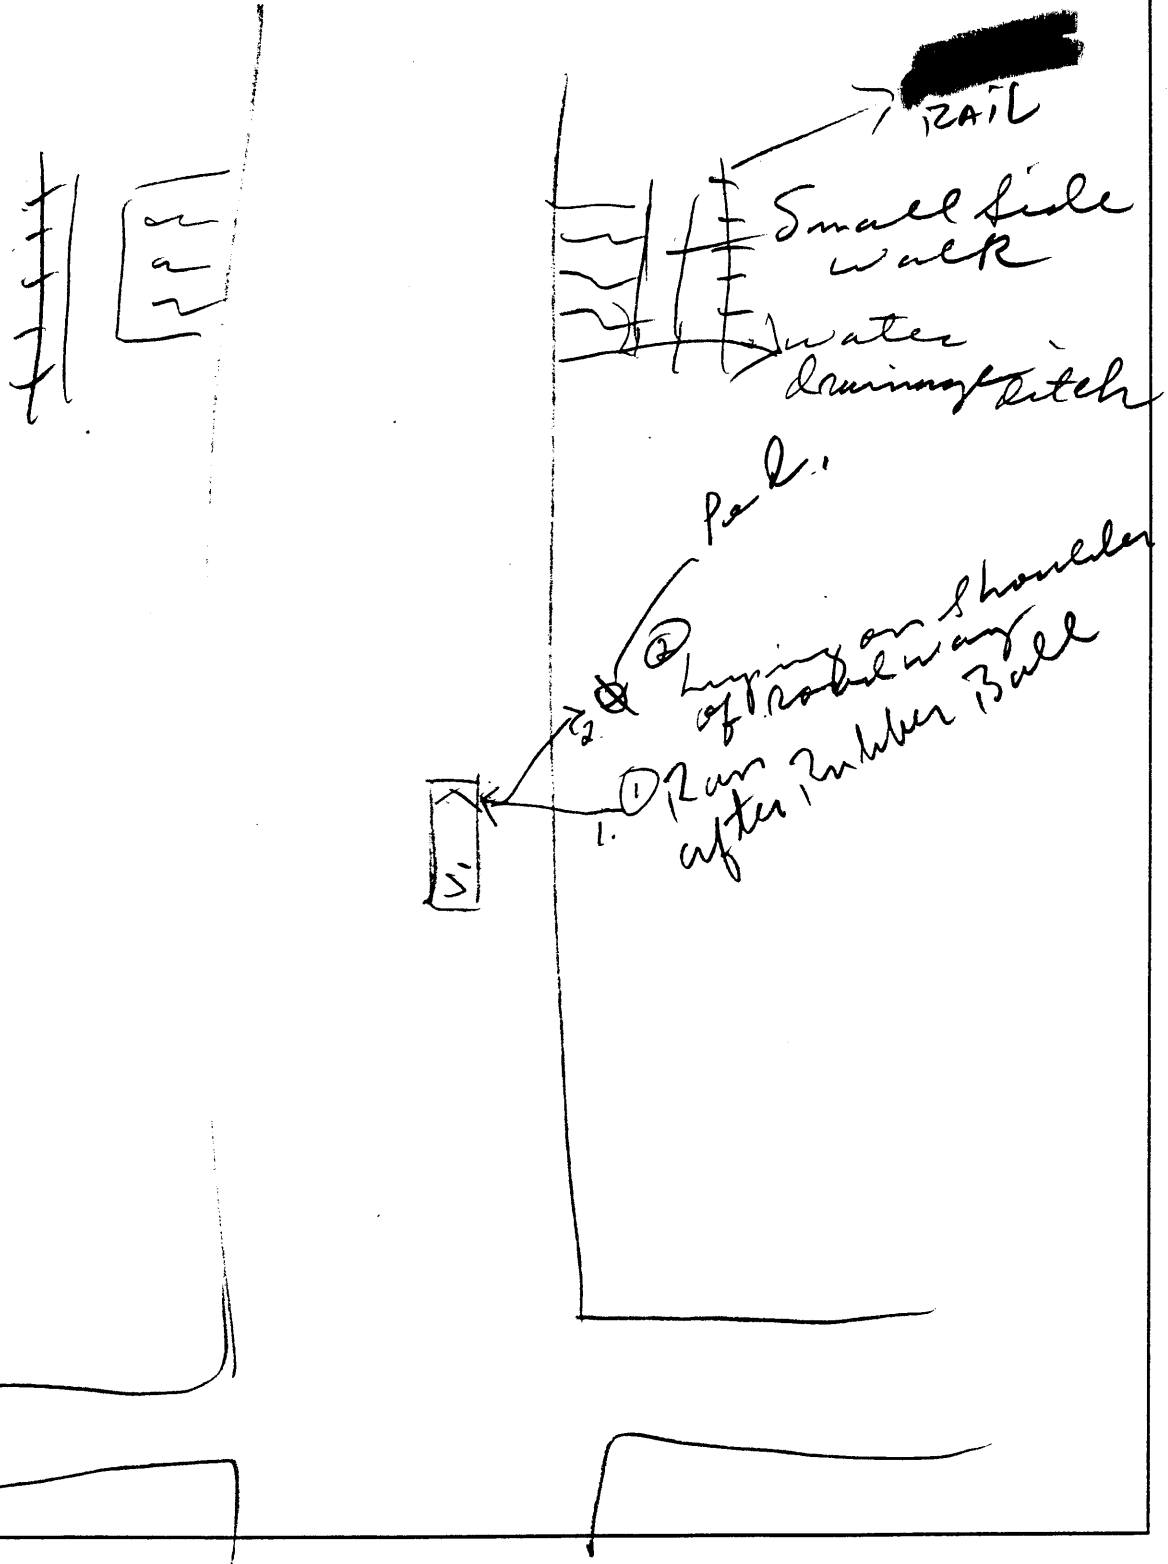 RAIL
Small Side
walk
water
drainage ditch
Ped.
② Laying on Shoulder
of roadway
2.
① Ran
after Rubber Ball
1.
V1